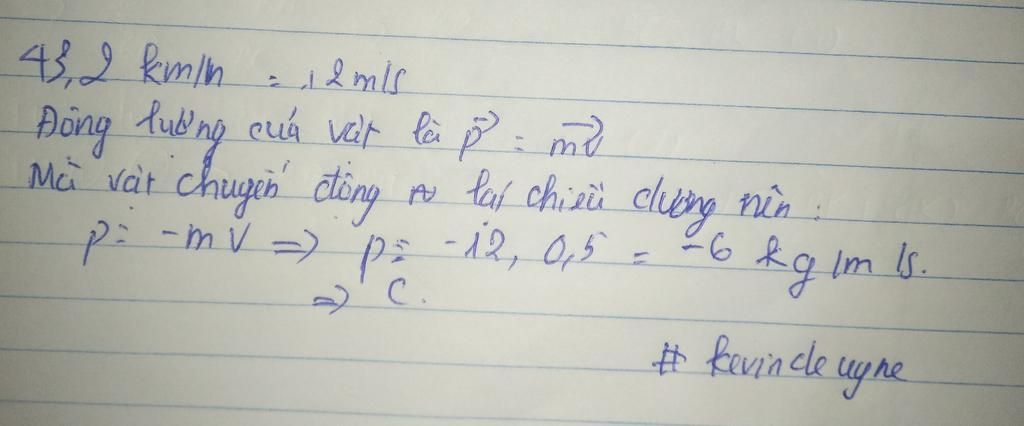 43,2 km/h = 12 m/s
Động lượng của vật là p⃗ = mv⃗
Mà vật chuyển động lại chiều dương nên:
p = -mv => p = -12, 0,5 = -6 kg/m/s.
=> C.
# kevindeuyne